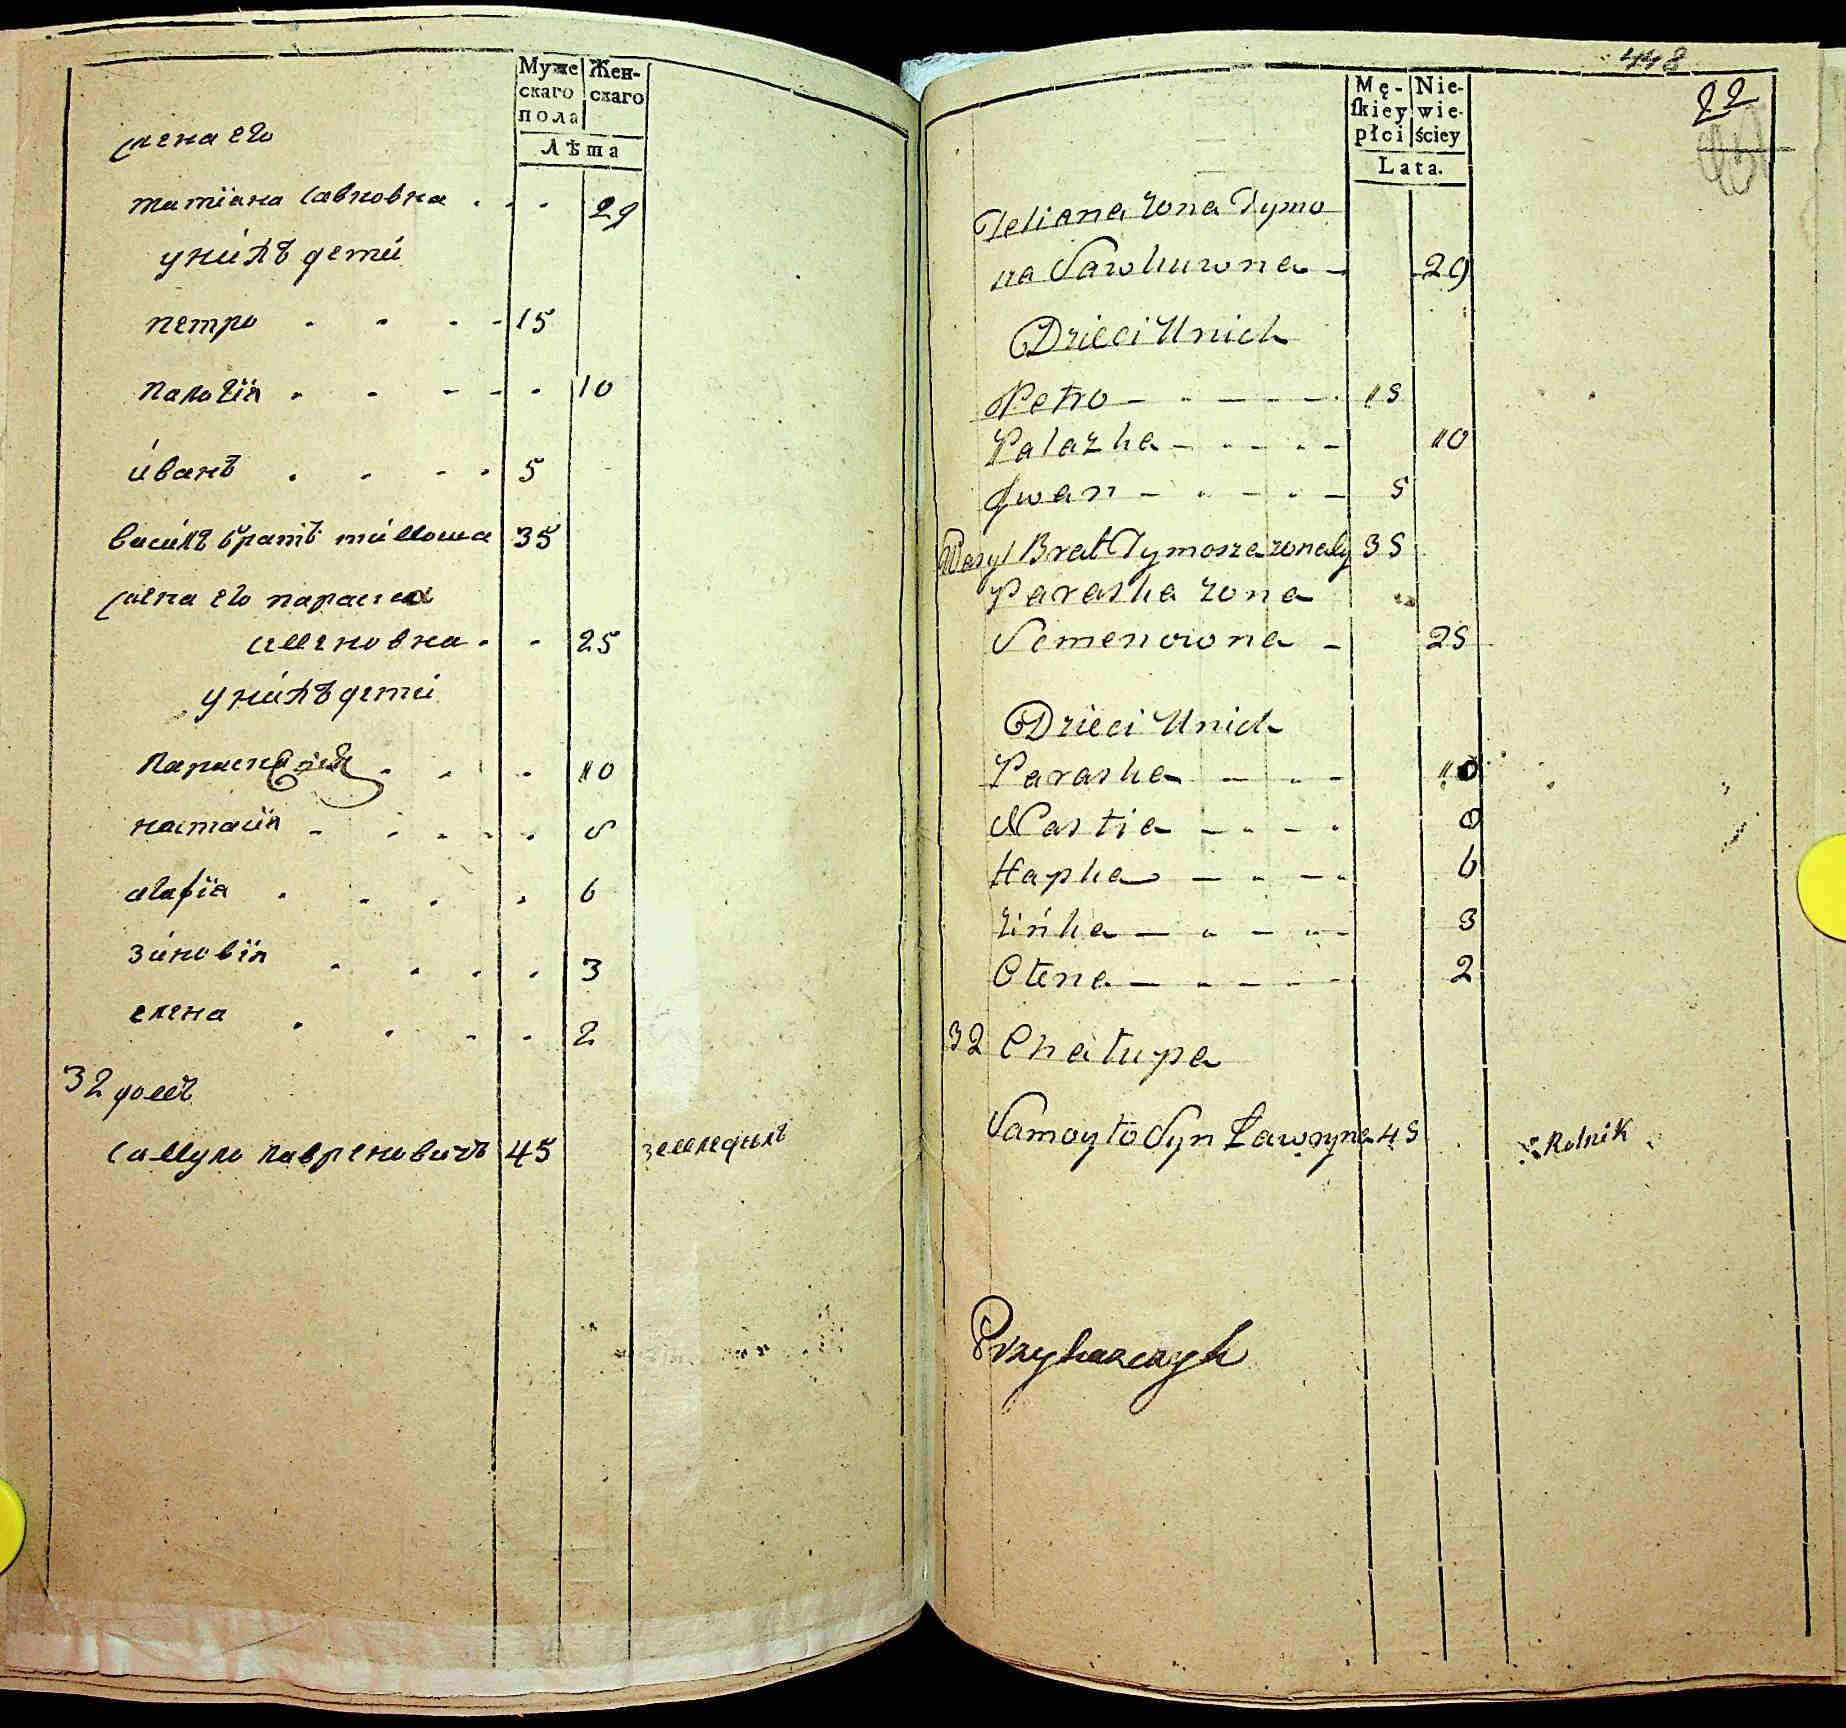 Муже Жен-
скаго скаго
пола
Лѣта
жена его
татïана савковна 29
унихъ дети
петро 15
палагïя 10
иванъ 5
василъ братъ тимоша 35
жена его параска
семеновна 25
унихъ дети
параскевïя 10
настасïя 8
агафïя 6
зиновïя 3
елена 2
32 домъ
самуло лавреновичъ 45 земледелъ
448
22
Mę- Nie-
ſkiey wie-
płci ściey
Lata.
Tetiana zona Tymo
sza Sawkuwna 29
Dzieci Unich
Petro 15
Palazka 10
Jwan 5
Wasyl Brat Tymosza zonaty 35
Paraska zona
Semenowna 25
Dzieci Unich
Paraska 10
Nastia 8
Hapka 6
Zińka 3
Ołena 2
32 Chałupa
Samoyło Syn Ławryna 45 Rolnik